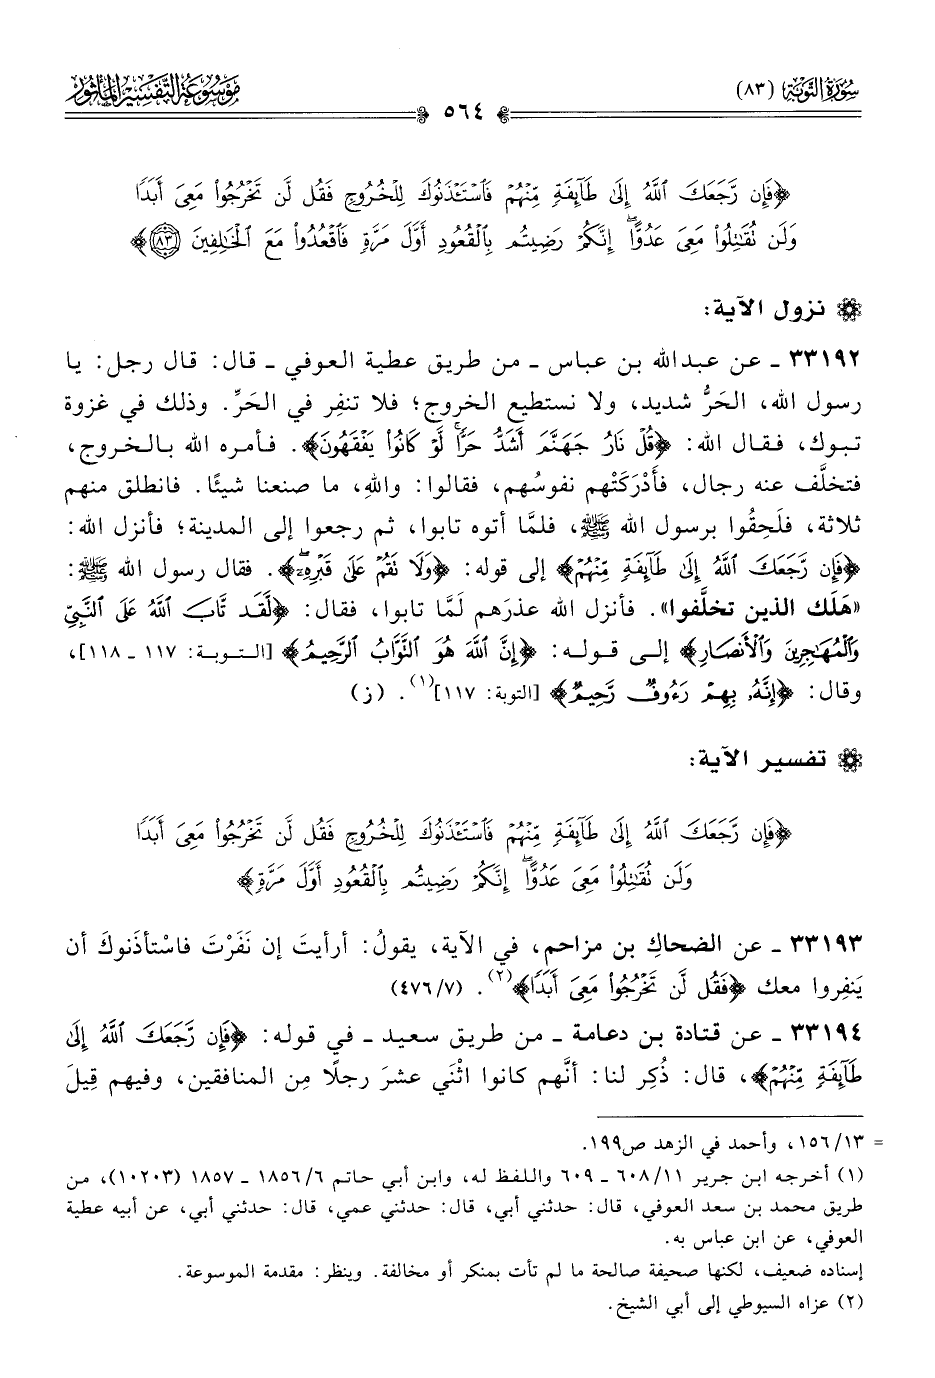 سُورَةُ التَّوْبَةِ (٨٣)
٥٦٤
مَوْسُوعَةُ التَّفْسِيرِ المَأْثُورِ
﴿فَإِن رَّجَعَكَ اللَّهُ إِلَىٰ طَآئِفَةٍ مِّنْهُمْ فَاسْتَـْٔذَنُوكَ لِلْخُرُوجِ فَقُل لَّن تَخْرُجُوا۟ مَعِىَ أَبَدًا
وَلَن تُقَـٰتِلُوا۟ مَعِىَ عَدُوًّا ۖ إِنَّكُمْ رَضِيتُم بِالْقُعُودِ أَوَّلَ مَرَّةٍ فَاقْعُدُوا۟ مَعَ الْخَـٰلِفِينَ ٨٣﴾
نزول الآية:
٣٣١٩٢ ـ عن عبدالله بن عباس ـ من طريق عطية العوفي ـ قال: قال رجل: يا
رسول الله، الحَرُّ شديد، ولا نستطيع الخروج؛ فلا تنفِر في الحَرِّ. وذلك في غزوة
تبوك، فقال الله: ﴿قُلْ نَارُ جَهَنَّمَ أَشَدُّ حَرًّا ۚ لَّوْ كَانُوا۟ يَفْقَهُونَ﴾. فأمره الله بالخروج،
فتخلَّف عنه رجال، فأَدْرَكَتْهم نفوسُهم، فقالوا: واللهِ، ما صنعنا شيئًا. فانطلق منهم
ثلاثة، فلَحِقُوا برسول الله ﷺ، فلمَّا أتوه تابوا، ثم رجعوا إلى المدينة؛ فأنزل الله:
﴿فَإِن رَّجَعَكَ اللَّهُ إِلَىٰ طَآئِفَةٍ مِّنْهُمْ﴾ إلى قوله: ﴿وَلَا تَقُمْ عَلَىٰ قَبْرِهِۦٓ ۖ﴾. فقال رسول الله ﷺ:
«هَلَك الذين تخلَّفوا». فأنزل الله عذرَهم لَمَّا تابوا، فقال: ﴿لَّقَد تَّابَ اللَّهُ عَلَى النَّبِىِّ
وَالْمُهَـٰجِرِينَ وَالْأَنصَارِ﴾ إلى قوله: ﴿إِنَّ اللَّهَ هُوَ التَّوَّابُ الرَّحِيمُ﴾ [التوبة: ١١٧ ـ ١١٨]،
وقال: ﴿إِنَّهُۥ بِهِمْ رَءُوفٌ رَّحِيمٌ﴾ [التوبة: ١١٧](١). (ز)
تفسير الآية:
﴿فَإِن رَّجَعَكَ اللَّهُ إِلَىٰ طَآئِفَةٍ مِّنْهُمْ فَاسْتَـْٔذَنُوكَ لِلْخُرُوجِ فَقُل لَّن تَخْرُجُوا۟ مَعِىَ أَبَدًا
وَلَن تُقَـٰتِلُوا۟ مَعِىَ عَدُوًّا ۖ إِنَّكُمْ رَضِيتُم بِالْقُعُودِ أَوَّلَ مَرَّةٍ﴾
٣٣١٩٣ ـ عن الضحاك بن مزاحم، في الآية، يقولُ: أرأيتَ إن نَفَرْتَ فاسْتأذَنوكَ أن
يَنفِروا معك ﴿فَقُل لَّن تَخْرُجُوا۟ مَعِىَ أَبَدًا﴾(٢). (٤٧٦/٧)
٣٣١٩٤ ـ عن قتادة بن دعامة ـ من طريق سعيد ـ في قوله: ﴿فَإِن رَّجَعَكَ اللَّهُ إِلَىٰ
طَآئِفَةٍ مِّنْهُمْ﴾، قال: ذُكِر لنا: أنَّهم كانوا اثْنَي عشرَ رجلًا مِن المنافقين، وفيهم قِيلَ
= ١٥٦/١٣، وأحمد في الزهد ص١٩٩.
(١) أخرجه ابن جرير ٦٠٨/١١ ـ ٦٠٩ واللفظ له، وابن أبي حاتم ١٨٥٦/٦ ـ ١٨٥٧ (١٠٢٠٣)، من
طريق محمد بن سعد العوفي، قال: حدثني أبي، قال: حدثني عمي، قال: حدثني أبي، عن أبيه عطية
العوفي، عن ابن عباس به.
إسناده ضعيف، لكنها صحيفة صالحة ما لم تأت بمنكر أو مخالفة. وينظر: مقدمة الموسوعة.
(٢) عزاه السيوطي إلى أبي الشيخ.